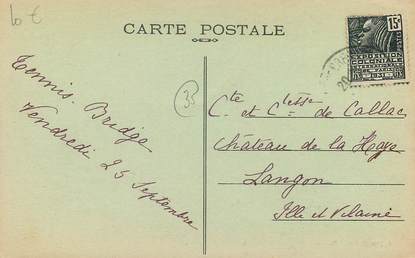 10 €
CARTE POSTALE
15c
POSTES
EXPOSITION
COLONIALE
INTERNATIONALE
PARIS 1931
3
Tennis. Bridge
Vendredi 25 Septembre
Cte et Ctesse de Callac
Château de la Haye
Langon
Ille et Vilaine